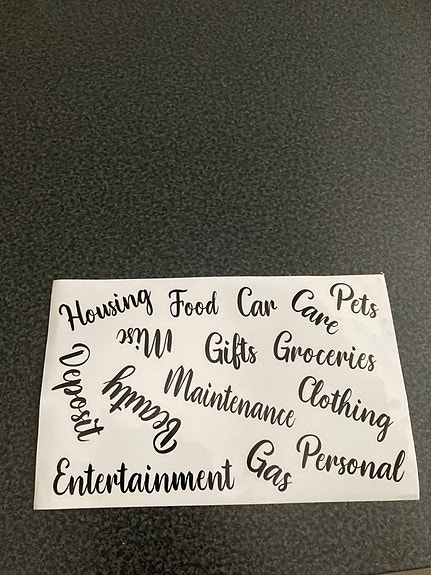 Housing Food Car Care Pets
Misc Gifts Groceries
Deposit Beauty Maintenance Clothing
Entertainment Gas Personal